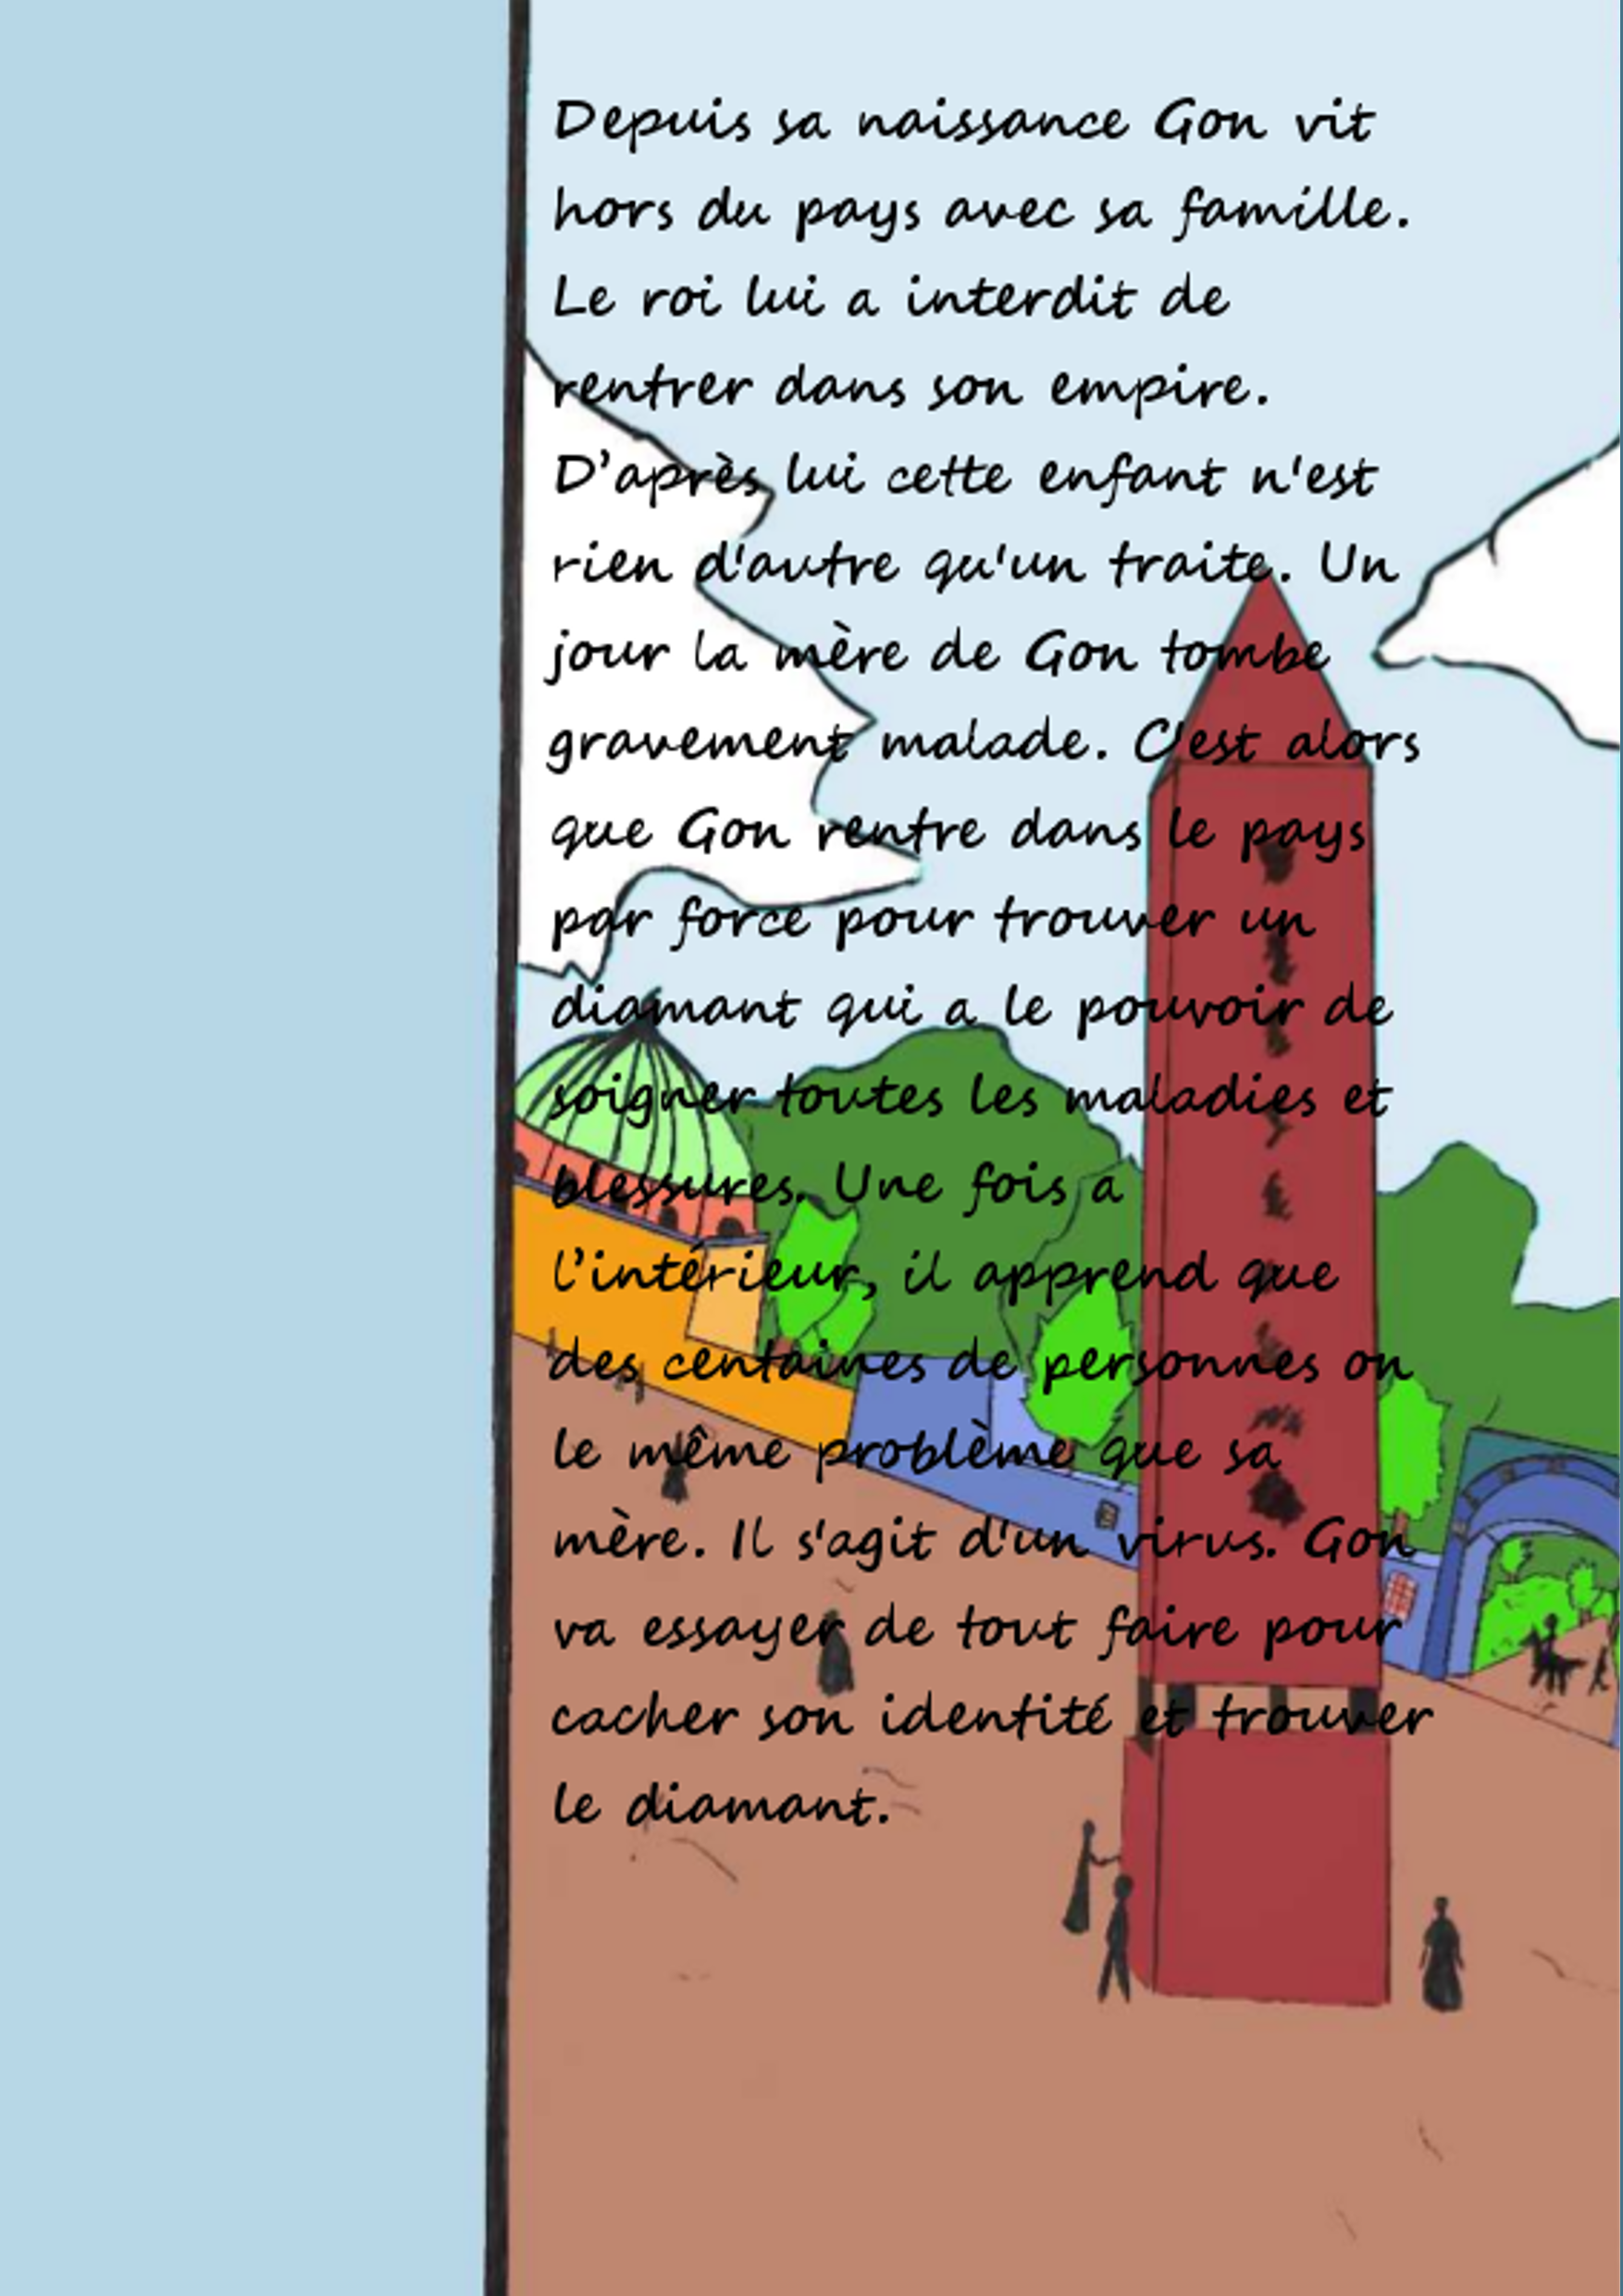 Depuis sa naissance Gon vit
hors du pays avec sa famille.
Le roi lui a interdit de
rentrer dans son empire.
D'après lui cette enfant n'est
rien d'autre qu'un traite. Un
jour la mère de Gon tombe
gravement malade. C'est alors
que Gon rentre dans le pays
par force pour trouver un
diamant qui a le pouvoir de
soigner toutes les maladies et
blessures. Une fois a
l'intérieur, il apprend que
des centaines de personnes on
le même problème que sa
mère. Il s'agit d'un virus. Gon
va essayer de tout faire pour
cacher son identité et trouver
le diamant.